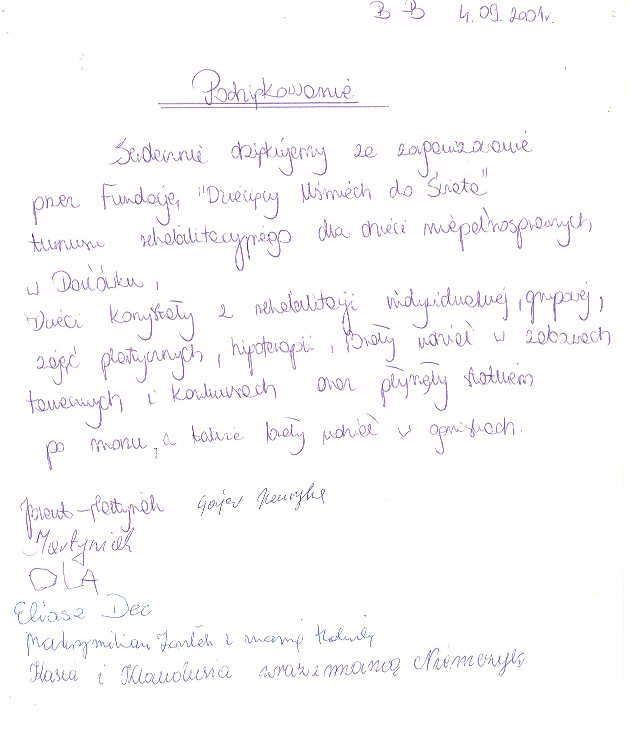 B-B 4.09.2001r.
Podziękowanie
Serdecznie dziękujemy za zapewnienie
przez Fundację "Dziecięcy Uśmiech do Świata"
turnusu rehabilitacyjnego dla dzieci niepełnosprawnych
w
Dzieci korzystały z rehabilitacji indywidualnej, grupowej,
zajęć plastycznych, hipoterapii, Brały udział w zabawach
tanecznych i konkursach oraz płynęły statkiem
po morzu, a także brały udział w ogniskach.
Martyniak
OLA
Eliasz Dec
Maksymilian z mamą
Kasia i Klaudusia wraz z mamą